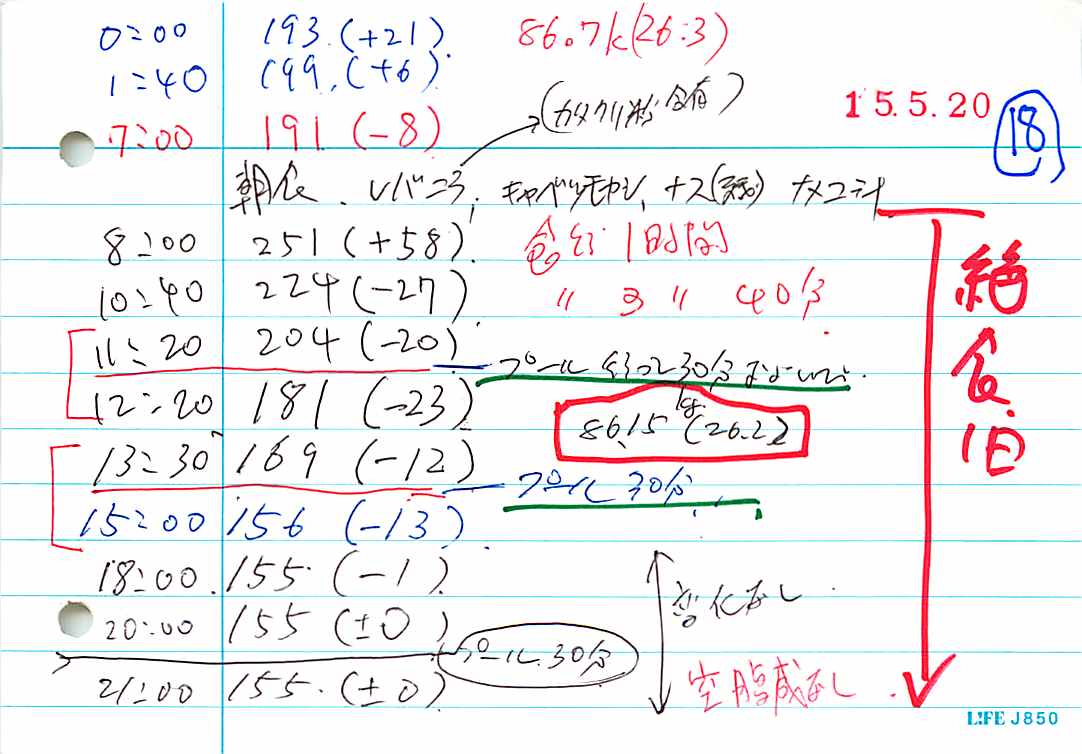 0:00 193 (+21) 86.7k(26.3)
1:40 199 (+6)
(カタクリ粉含有)
15.5.20 18
7:00 191 (-8)
朝食、レバニラ、キャベツモヤシ、ナス ナメコ汁
8:00 251 (+58) 食後1時間
10:40 224 (-27) 〃 3 〃 40分
11:20 204 (-20) プール 30分
12:20 181 (-23) 86.15kg (26.2)
13:30 169 (-12) プール30分
15:00 156 (-13)
18:00 155 (-1)
20:00 155 (±0)
プール30分
21:00 155 (±0)
変化なし
空腹感なし
絶食1日
LIFE J850